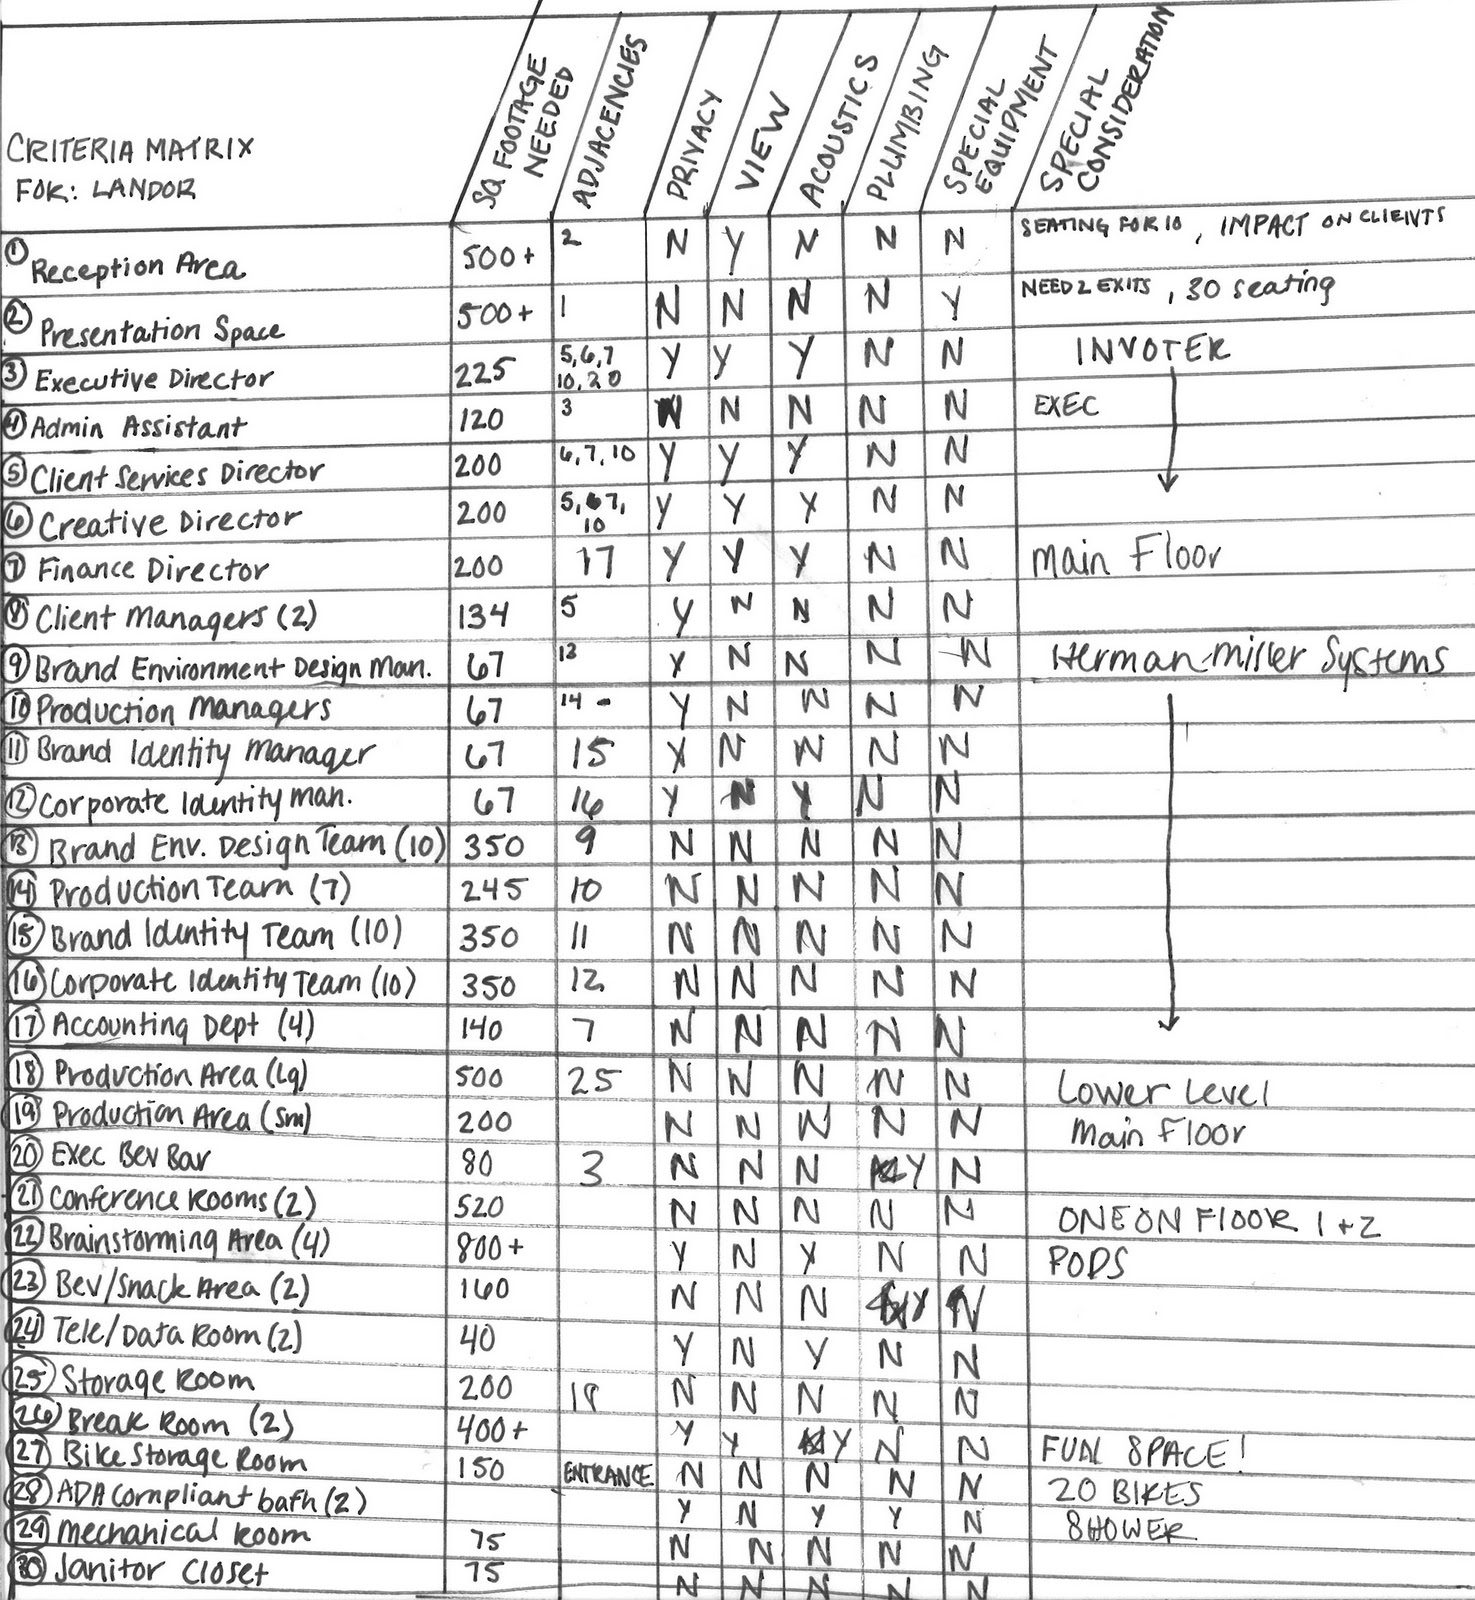 CRITERIA MATRIX
FOR: LANDOR
SQ FOOTAGE NEEDED
ADJACENCIES
PRIVACY
VIEW
ACOUSTICS
PLUMBING
SPECIAL EQUIPMENT
SPECIAL CONSIDERATION
1 Reception Area 500+ 2 N Y N N N SEATING FOR 10, IMPACT ON CLIENTS
2 Presentation Space 500+ 1 N N N N Y NEED 2 EXITS, 30 seating
3 Executive Director 225 5,6,7 10,20 Y Y Y N N INVOTER
4 Admin Assistant 120 3 N N N N N EXEC
5 Client Services Director 200 6,7,10 Y Y Y N N
6 Creative Director 200 5, 7, 10 Y Y Y N N
7 Finance Director 200 17 Y Y Y N N Main Floor
8 Client Managers (2) 134 5 Y N N N N
9 Brand Environment Design Man. 67 13 Y N N N N Herman-Miller Systems
10 Production Managers 67 14 - Y N N N N
11 Brand Identity Manager 67 15 Y N N N N
12 Corporate Identity Man. 67 16 Y N Y N N
13 Brand Env. Design Team (10) 350 9 N N N N N
14 Production Team (7) 245 10 N N N N N
15 Brand Identity Team (10) 350 11 N N N N N
16 Corporate Identity Team (10) 350 12 N N N N N
17 Accounting Dept (4) 140 7 N N N N N
18 Production Area (Lg) 500 25 N N N N N Lower Level
19 Production Area (Sm) 200 N N N N N Main Floor
20 Exec Bev Bar 80 3 N N N Y N
21 Conference Rooms (2) 520 N N N N N ONE ON FLOOR 1+2
22 Brainstorming Area (4) 800+ Y N Y N N PODS
23 Bev/Snack Area (2) 160 N N N Y N
24 Tele/Data Room (2) 40 Y N Y N N
25 Storage Room 200 18 N N N N N
26 Break Room (2) 400+ Y Y Y N N FUN SPACE!
27 Bike Storage Room 150 ENTRANCE N N N N N 20 BIKES
28 ADA Compliant bath (2) Y N Y Y N SHOWER
29 Mechanical Room 75 N N N N N
30 Janitor Closet 75 N N N N N